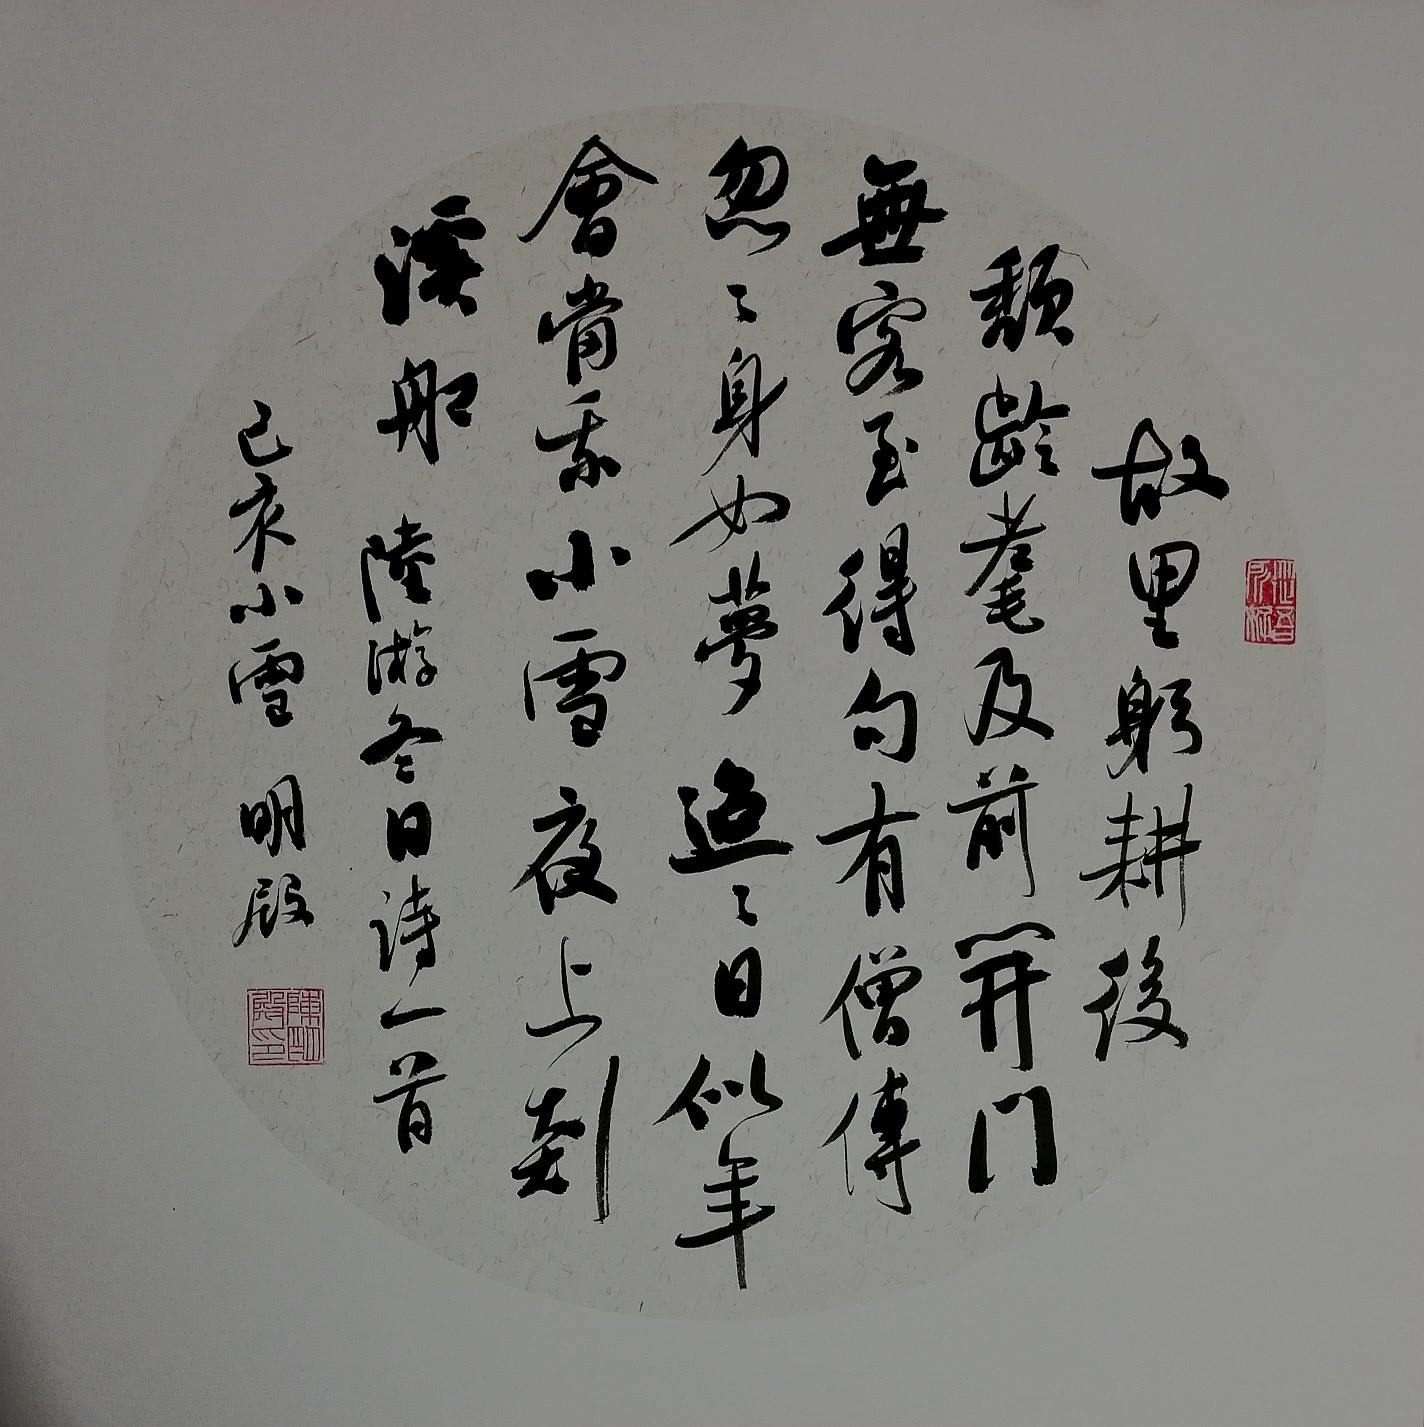 故里躬耕後
頽齡耄及前開門
無客至得句有僧傳
忽々身如夢迢々日似年
會當乘小雪夜上剡
溪船 陸游冬日詩一首
己亥小雪 明殿
陳明殿印